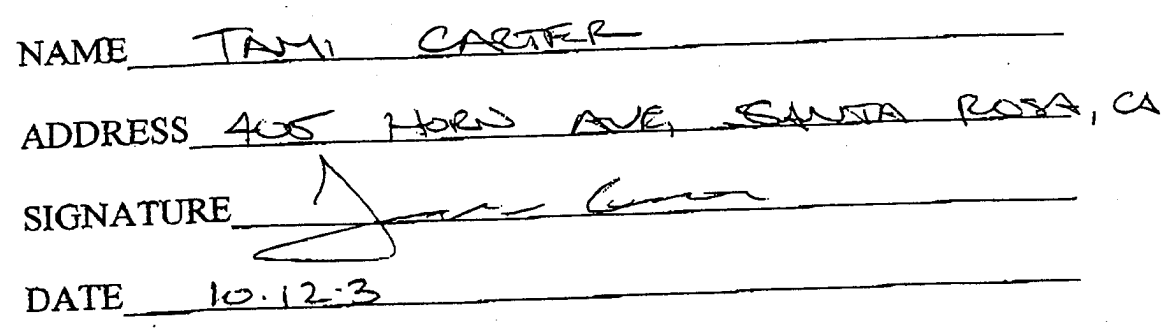 NAME TAMI CARTER
ADDRESS 405 HORN AVE, SANTA ROSA, CA
SIGNATURE
DATE 10.12.3